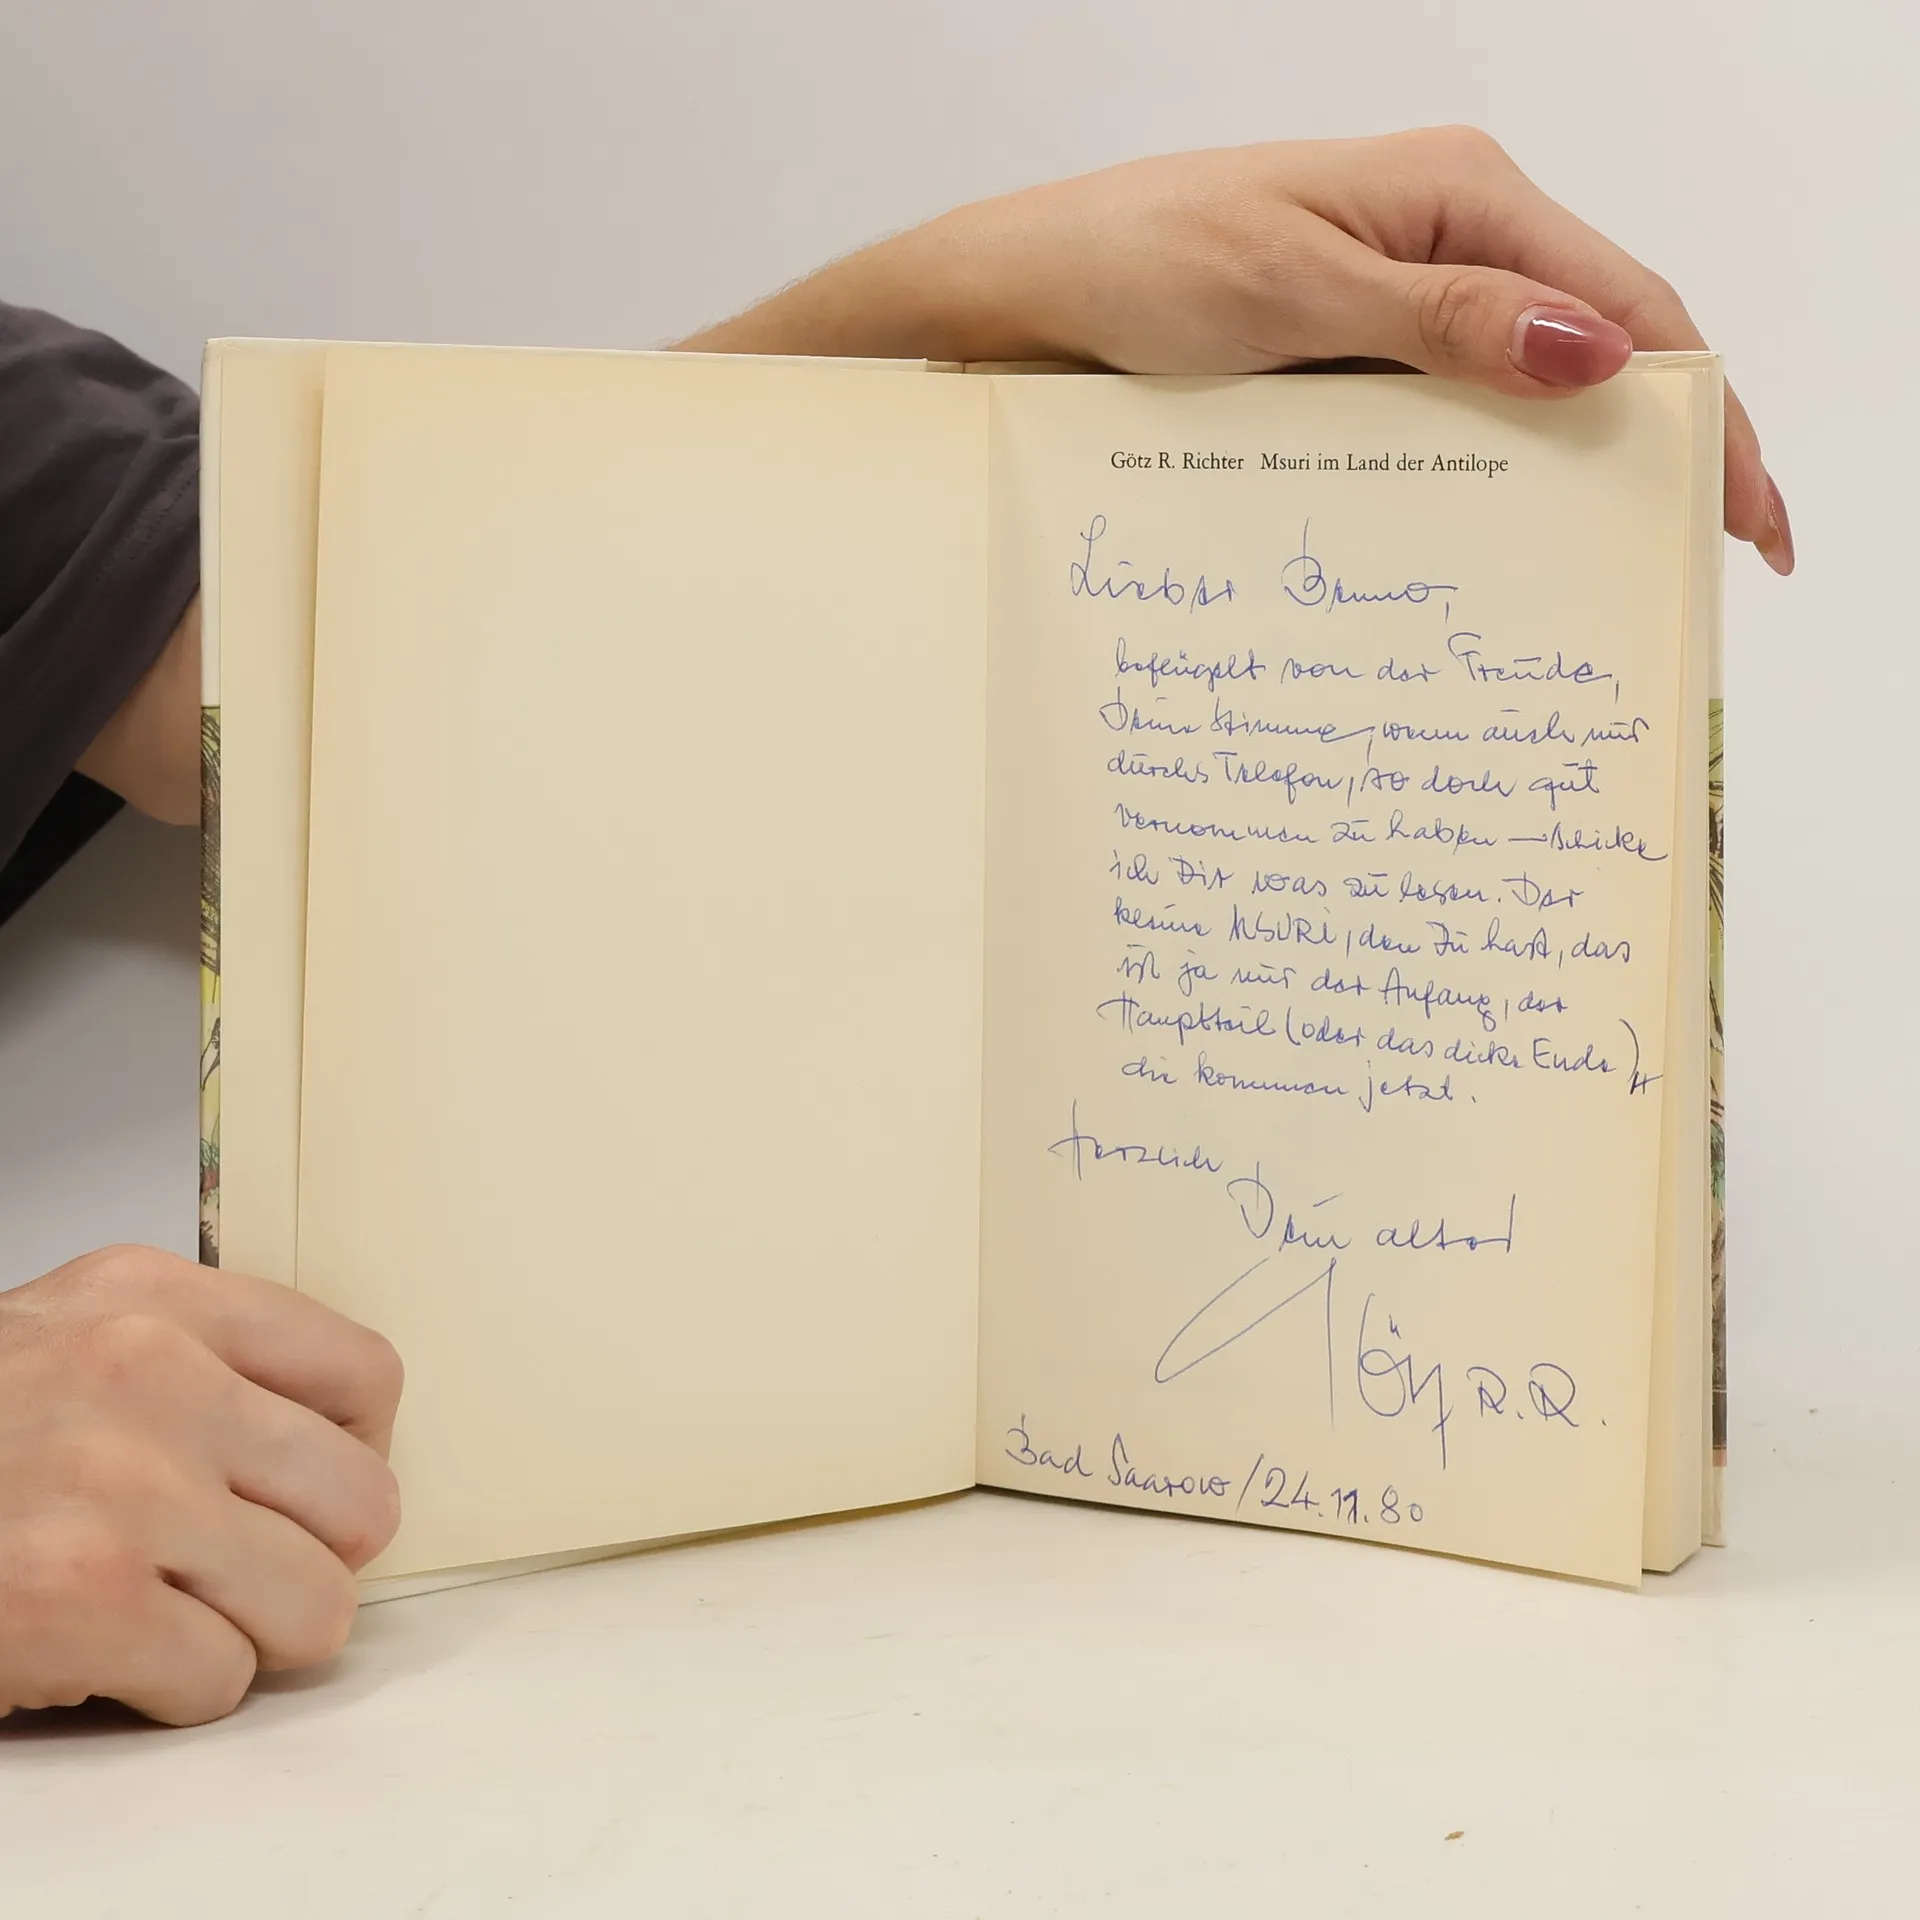 Götz R. Richter Msuri im Land der Antilope
Lieber Benno,
beflügelt von der Freude,
Deine Stimme, wenn auch nur
durchs Telefon, so doch gut
vernommen zu haben — schicke
ich Dir was zu lesen. Der
kleine MSURI, den Du hast, das
ist ja nur der Anfang, der
Hauptteil (oder das dicke Ende),
die kommen jetzt.
Herzlich
Dein alter
Götz R. R.
Bad Saarow/24.11.80